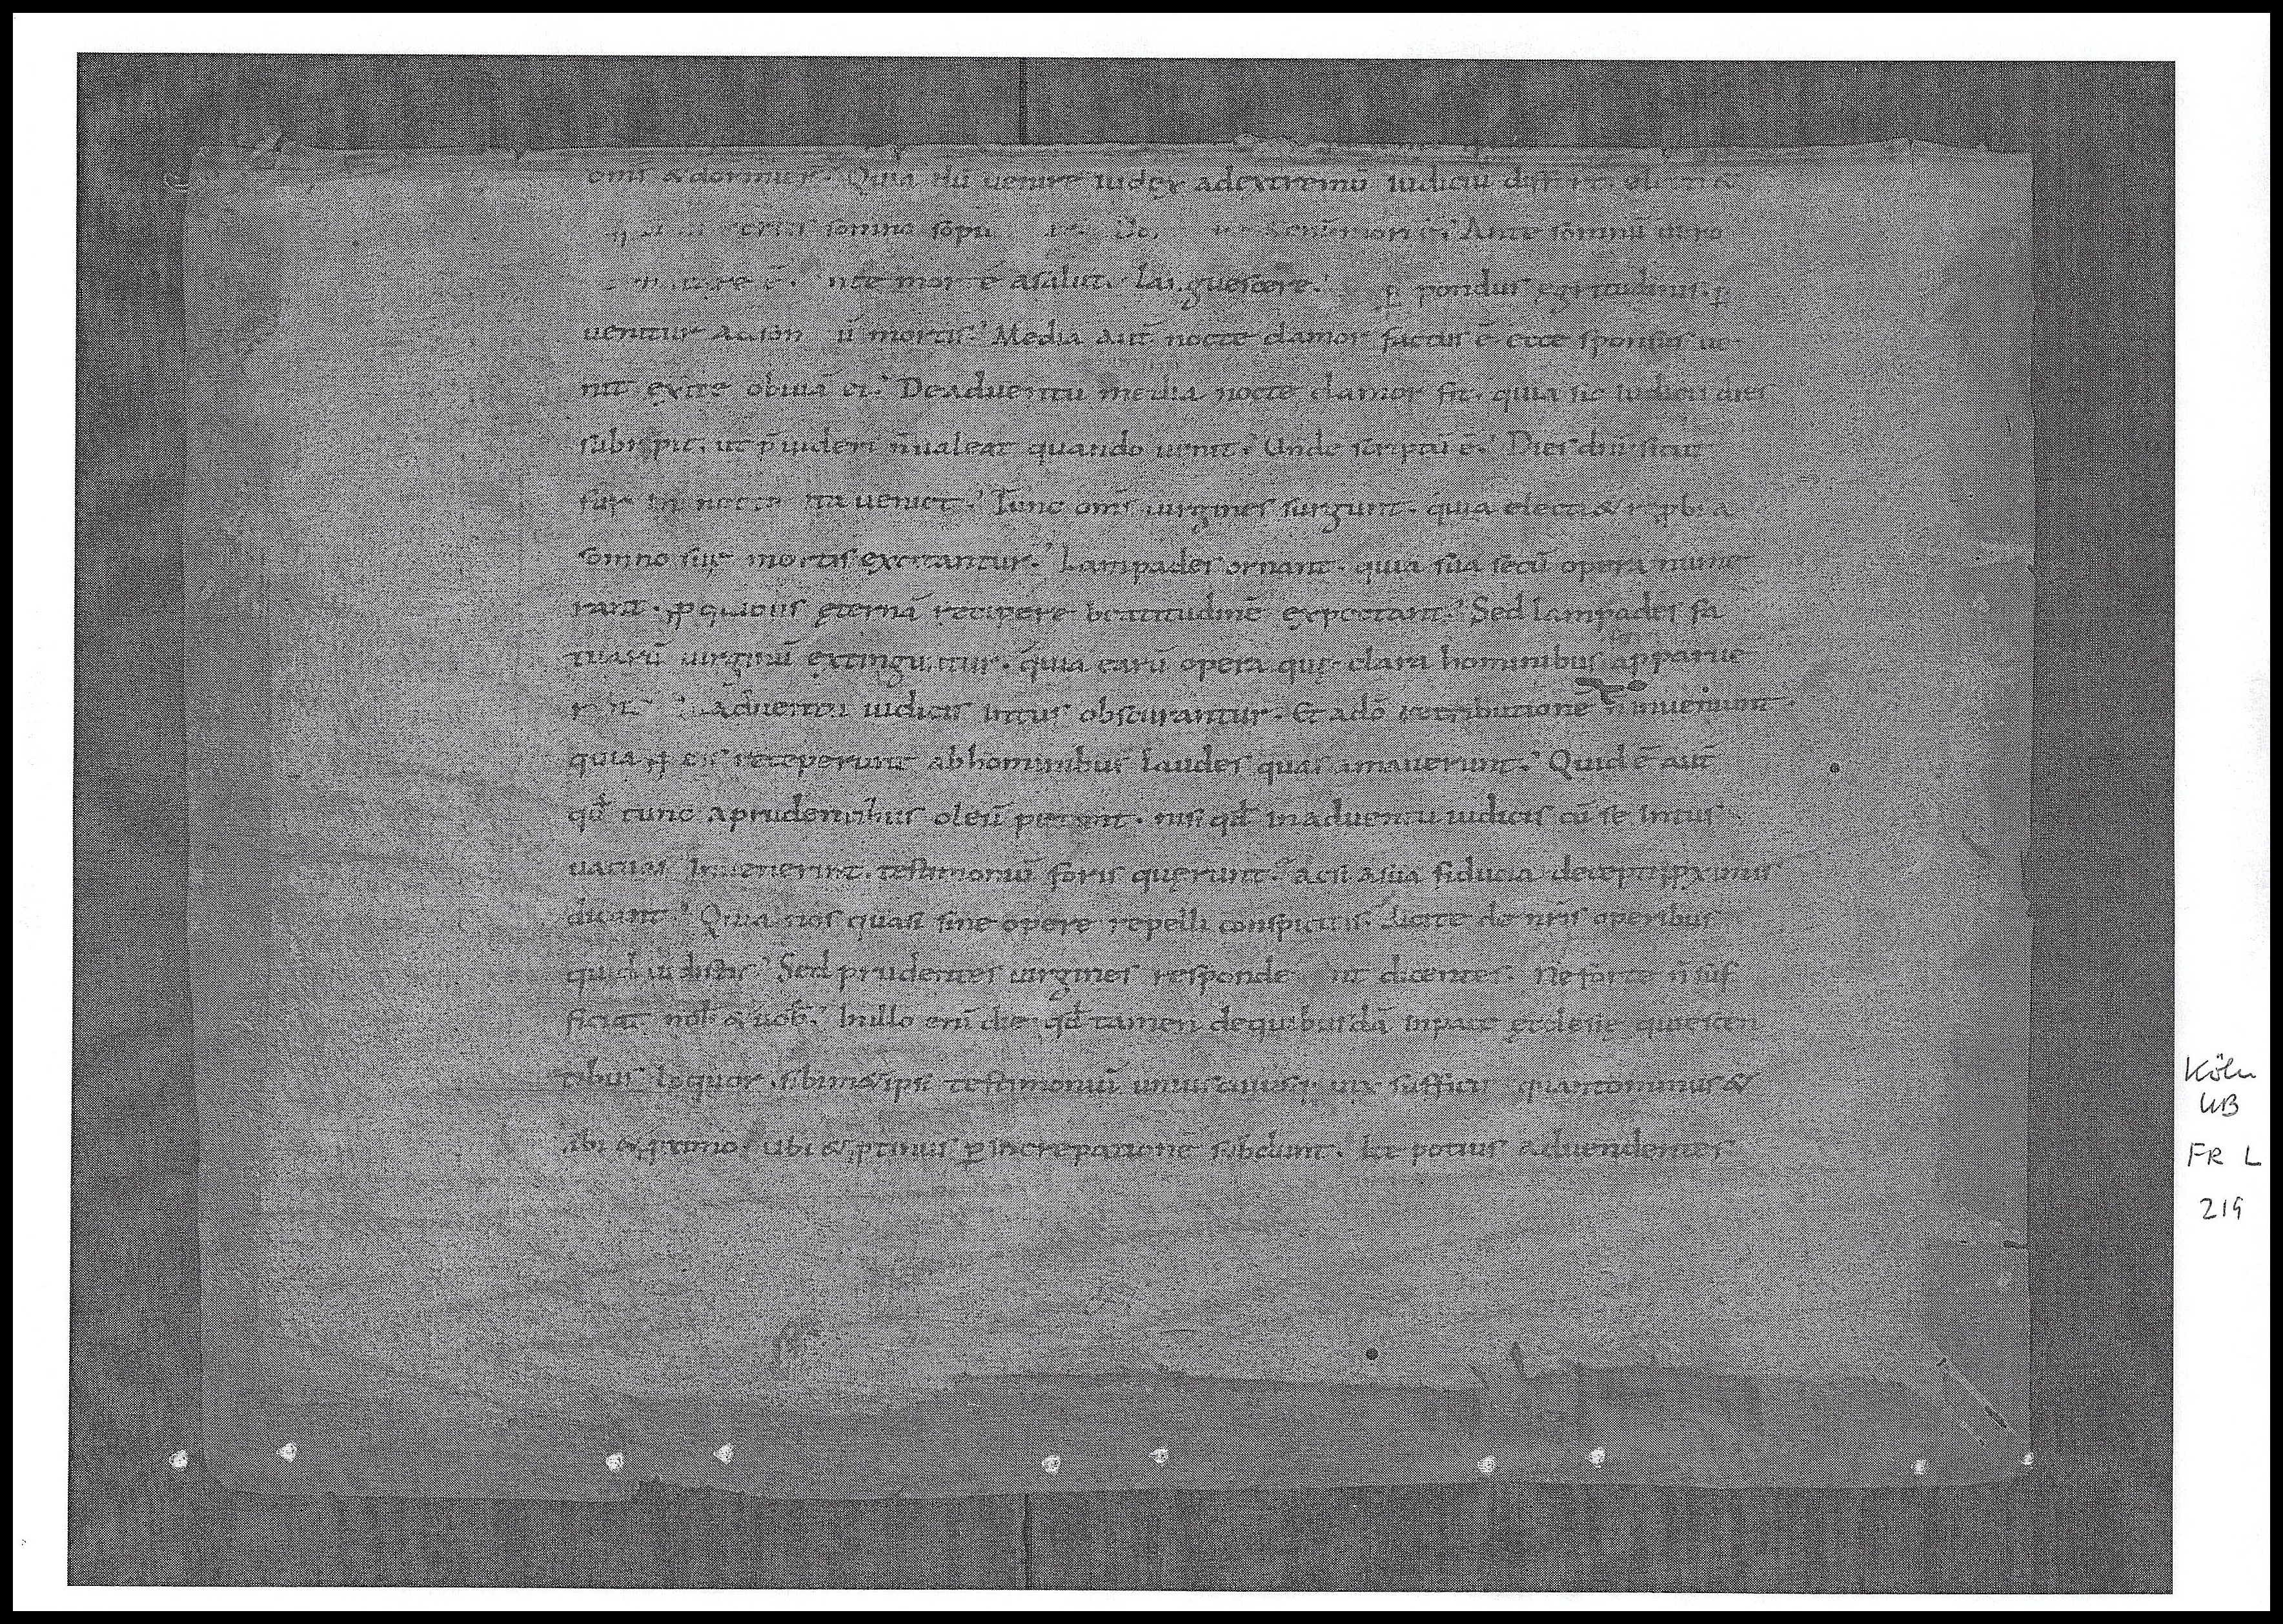 om̄s & dormier̄. Quia dū uenire iudex adextremū iudiciū differt electi &
somno sopi Ante somnū uero
nte morte asalute languescere. ꝑ pondus ęgritudinis ꝑ
uenitur adsomnū mortis. Media aut̄ nocte clamor factus ē ecce sponsus ue
nit exite obuiā ei. Deaduentu media nocte clamor fit. quia sic iudicii dies
subripit. ut p̄uideri n̄ualeat quando uenit. Unde scriptū ē. Dies dn̄i sicut
fur in nocte ita ueniet. Tunc om̄s uirgines surgunt. quia electi & reꝓbi a
somno suę mortis excitantur. Lampades ornant. quia sua secū opera nume
rant. ꝓquibus ęternā recipere beatitudinē expectant. Sed lampades fa
tuarū uirginū extinguntur. quia earū opera quę clara hominibus apparue
rant aduentu iudicis intus obscurantur. Et ado retributionē n̄ inueniunt.
quia ꝓ eis receperunt abhominibus laudes quas amauerunt. Quid ē aut̄
qd̄ tunc aprudentibus oleū petunt. nisi qd̄ inaduentu iudicis cū se intus
uacuas inuenerint. testimoniū foris querunt. acsi asua fiducia deceptę ꝓximis
dicant. Quia nos quasi sine opere repelli conspicitis. dicite de nr̄is operibus
quid uidistis. Sed prudentes uirgines responde nt dicentes. Ne forte n̄ suf
ficiat nob̄ & uob̄. Inillo eni die qd̄ tamen dequibusdā inpace ecclesię quiescen
tibus loquor. sibim&ipsi testimoniū uniuscuiusq; uix sufficit quantominus &
sibi & ꝓximo. Ubi & ꝓtinus ꝑ increpationē subdunt. Ite potius aduendentes
Köln
UB
FR L
219